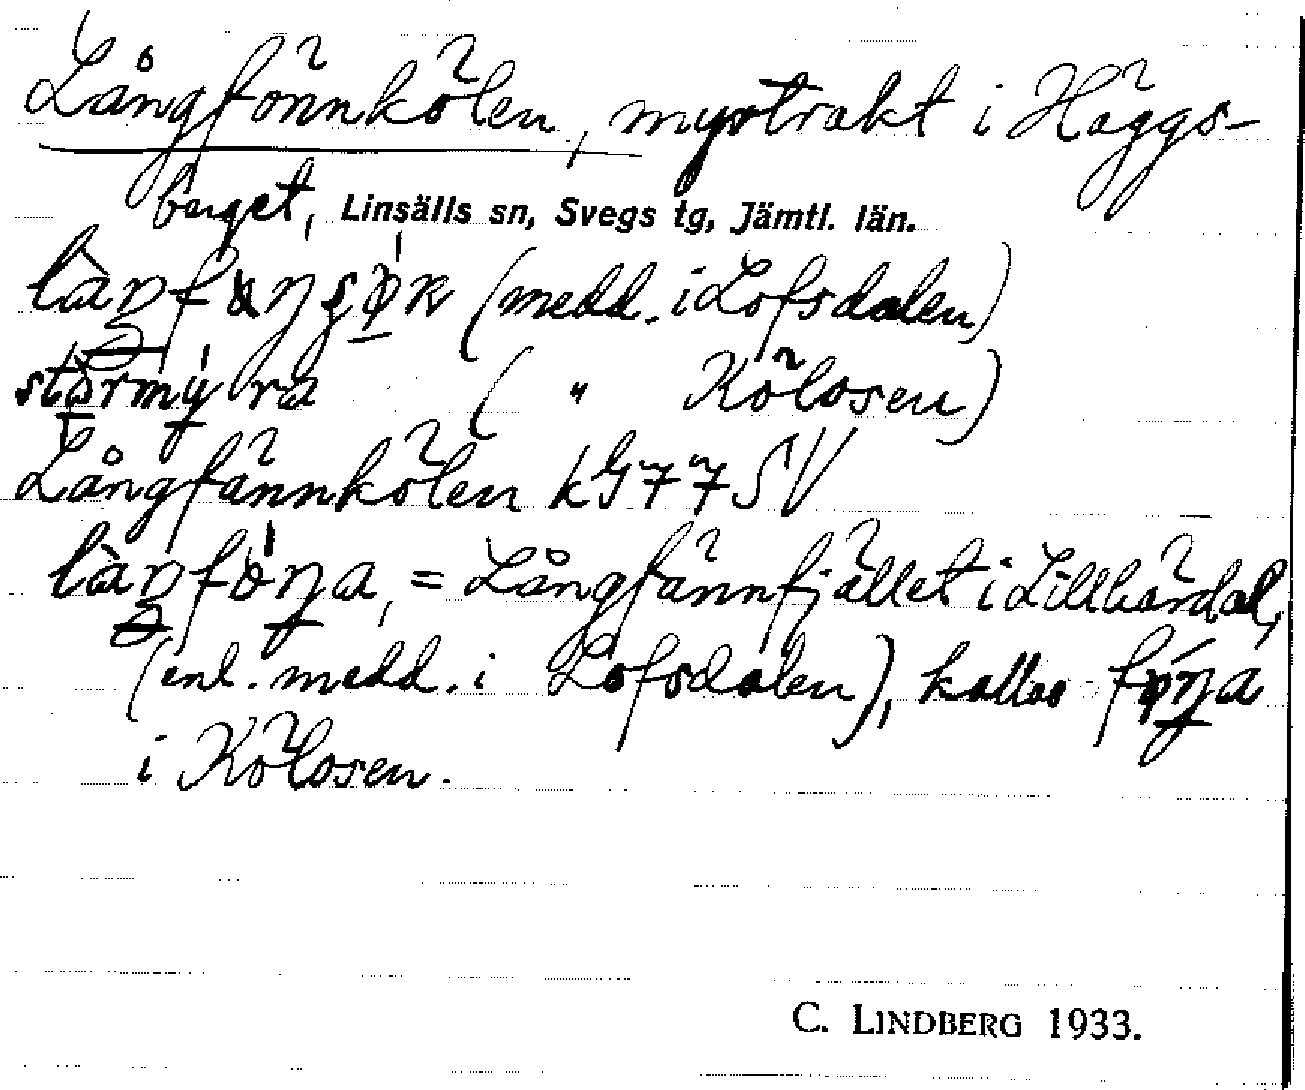 Långfönnkölen, myrtrakt i Häggs-
berget, Linsälls sn, Svegs tg, Jämtl. län.
(medd. i Lofsdalen)
( " Kölosen)
Långfännkölen kG 77 SV
= Långfännfjället i Lillhärdal,
(enl. medd. i Lofsdalen), kallas
i Kölosen.
C. LINDBERG 1933.